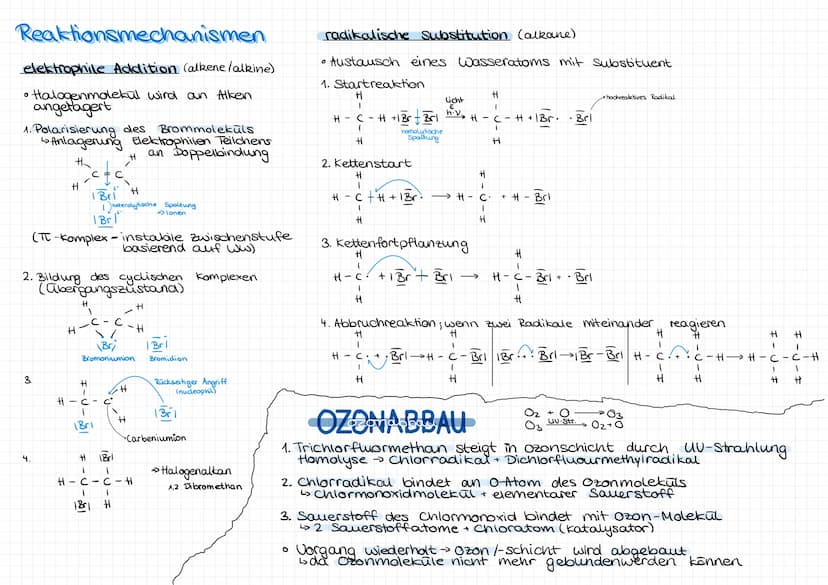 Reaktionsmechanismen
elektrophile Addition (alkene/alkine)
• Halogenmolekül wird an Alken
angelagert
1. Polarisierung des Brommoleküls
↳ Anlagerung Elektrophilen Teilchens
an Doppelbindung
H H
C = C
H H
|Br|
heterolytische Spaltung
⇒ Ionen
|Br|
(π-Komplex - instabile Zwischenstufe
basierend auf WW)
2. Bildung des cyclischen Komplexen
(Übergangszustand)
H H
H - C - C - H
|Br| |Br|
Bromoniumion Bromidion
3.
Rückseitiger Angriff
(nucleophil)
H H
H - C - C
H
|Br| |Br|
Carbeniumion
4.
H |Br|
H - C - C - H
|Br| H
⇒ Halogenalkan
1,2 Dibromethan
radikalische Substitution (alkane)
• Austausch eines Wasseratoms mit Substituent
1. Startreaktion
H H
H - C - H + |Br + Br| Licht h·ν → H - C - H + |Br· ·Br|
H H
homolytische
Spaltung
hochreaktives Radikal
2. Kettenstart
H H
H - C + H + |Br· → H - C· + H - Br|
H H
3. Kettenfortpflanzung
H H
H - C· + |Br + Br| → H - C - Br| + ·Br|
H H
4. Abbruchreaktion; wenn zwei Radikale miteinander reagieren
H H H H H H
H - C· + ·Br| → H - C - Br| |Br· ·Br| → |Br - Br| H - C· ·C - H → H - C - C - H
H H H H H H
OZONABBAU
O₂ + O → O₃
O₃ UV-Str. → O₂ + O
1. Trichlorfluormethan steigt in ozonschicht durch UV-Strahlung
Homolyse → Chlorradikal + Dichlorfluourmethylradikal
2. Chlorradikal bindet an O-Atom des Ozonmoleküls
↳ Chlormonoxidmolekül + elementarer Sauerstoff
3. Sauerstoff des Chlormonoxid bindet mit Ozon-Molekül
↳ 2 Sauerstoffatome + Chloratom (Katalysator)
• Vorgang wiederholt → Ozon/-schicht wird abgebaut
↳ da Ozonmoleküle nicht mehr gebundenwerden können